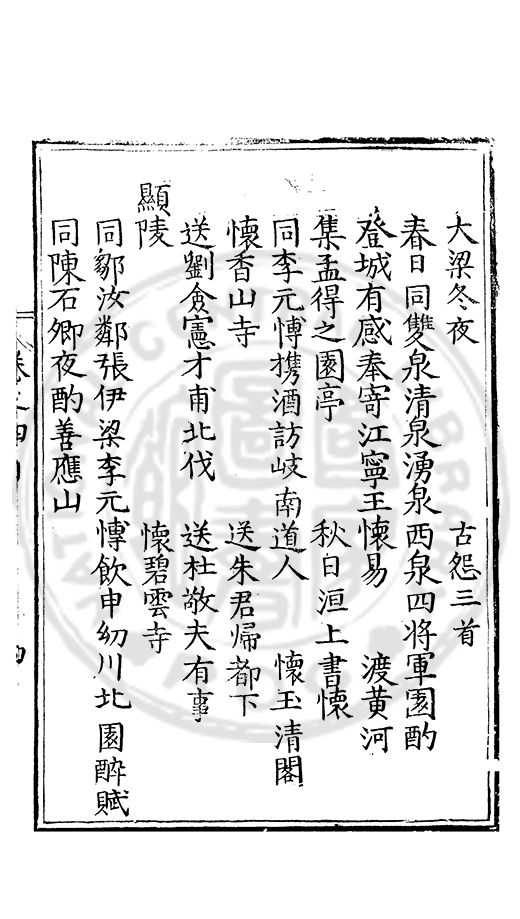 大梁冬夜 古怨三首
春日同雙泉清泉湧泉西泉四將軍園酌
登城有感奉寄江寧王懷易 渡黃河
集孟得之園亭 秋日洹上書懷
同李元博携酒訪岐南道人 懷玉清閣
懷香山寺 送朱君帰都下
送劉僉憲才甫北伐 送杜敬夫有事
顯陵 懷碧雲寺
同鄒汝鄰張伊梁李元博飲申幼川北園醉賦
同陳石卿夜酌善應山
卷之四目 四